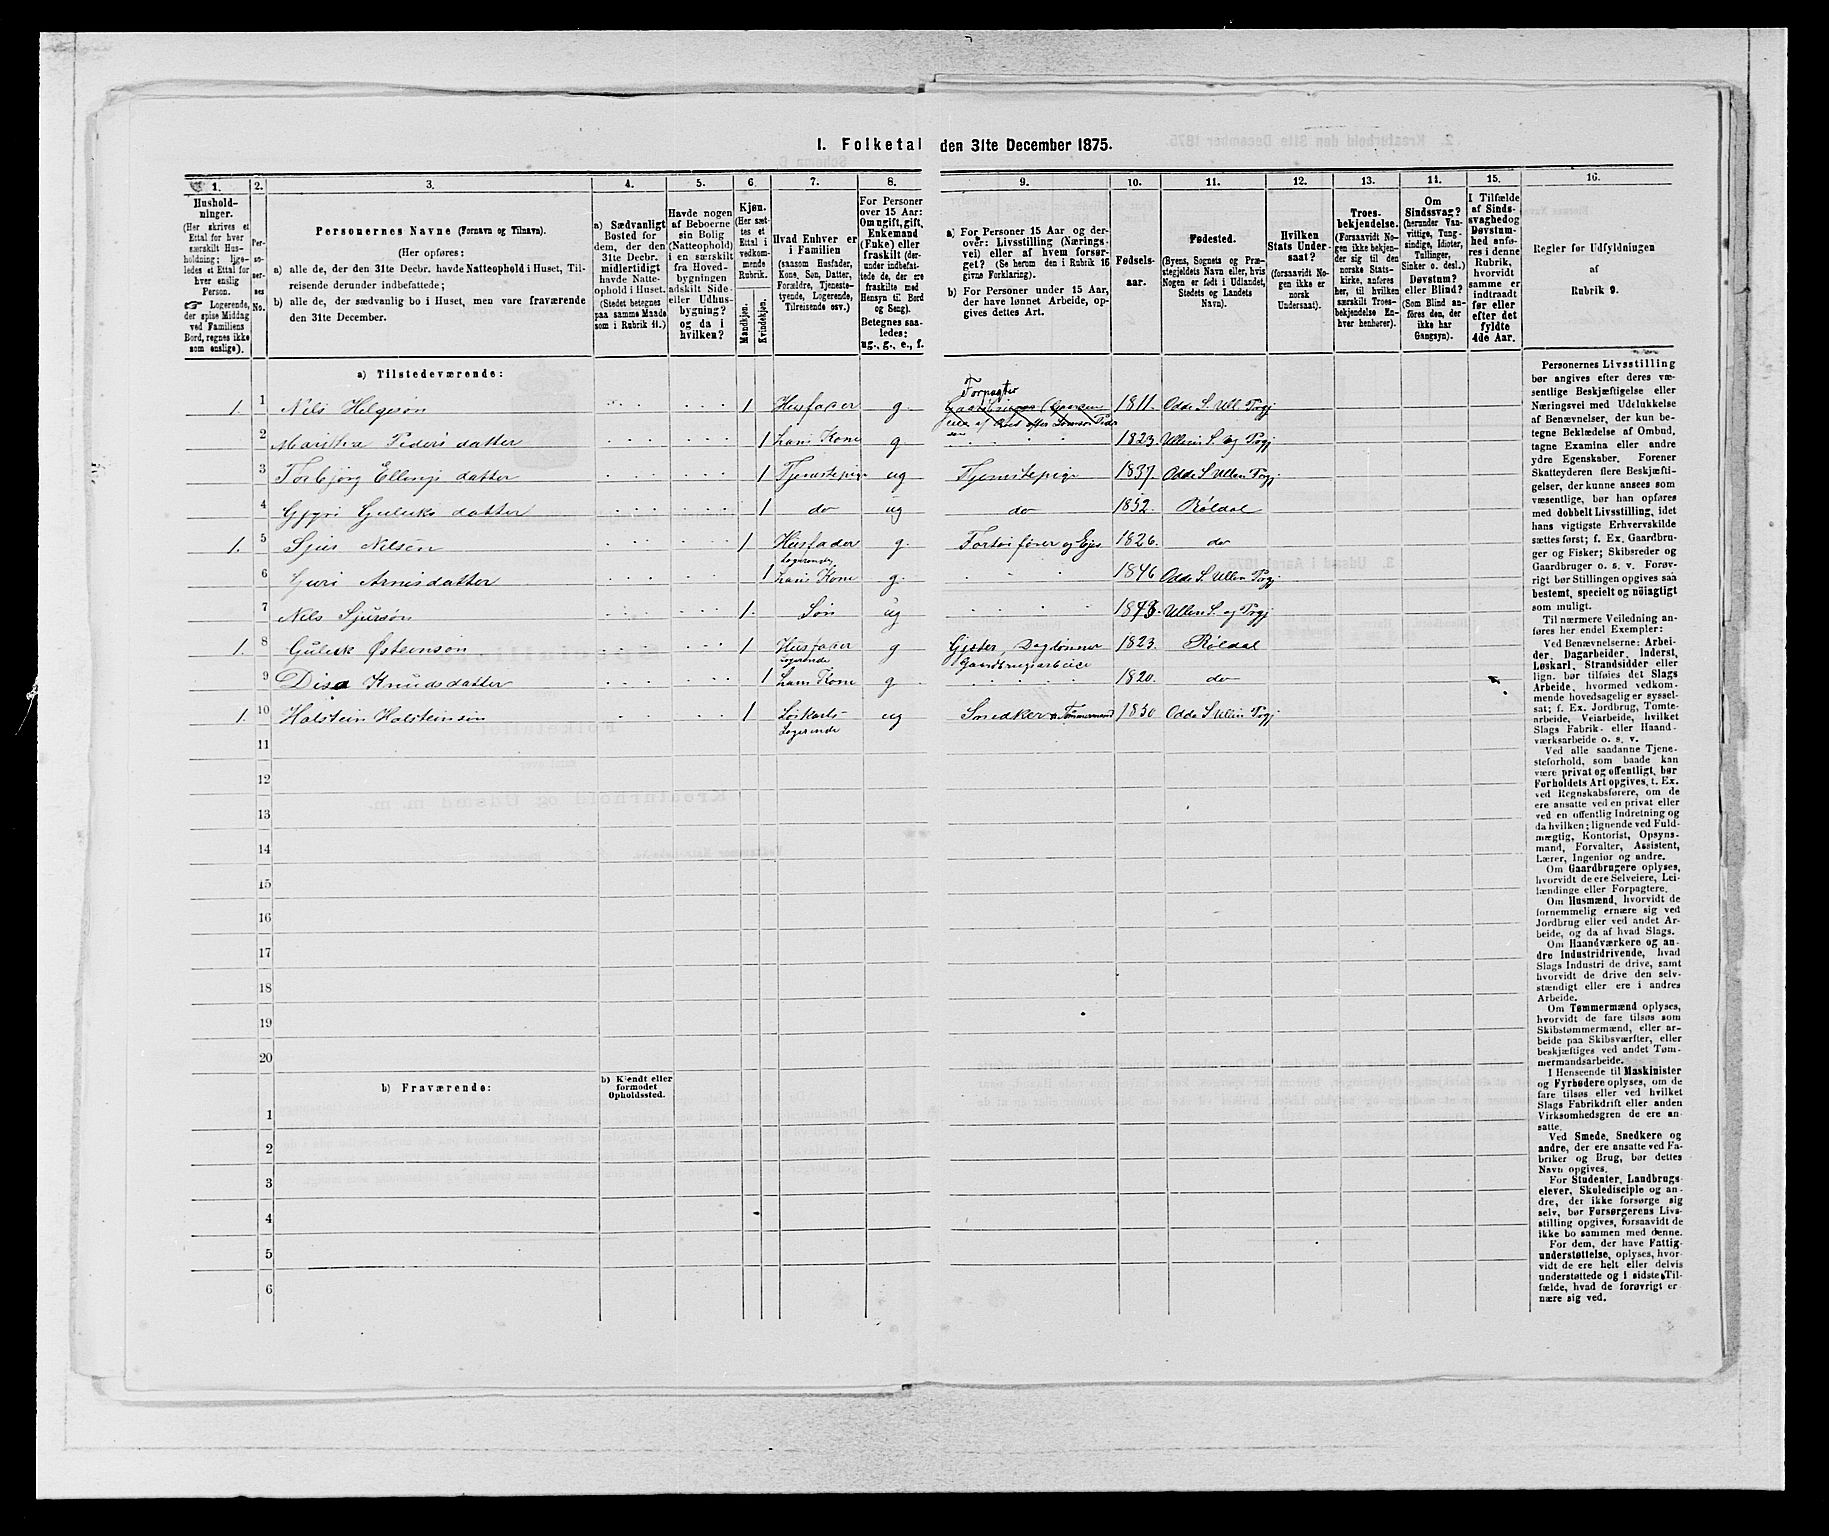 I. Folketal den 31te December 1875.
1. 2. 3. 4. 5. 6. 7. 8. 9. 10. 11. 12. 13. 14. 15. 16.
Husholdninger.
(Her skrives et
Ettal for hver
særskilt Hus-
holdning; lige-
ledes et Ettal for
hver enslig
Person.
☞ Logerende,
der spise Middag
ved Familiens
Bord, regnes ikke
som enslige).
Per-
so-
ner-
nes
No.
Personernes Navne (Fornavn og Tilnavn).
(Her opføres:
a) alle de, der den 31te Decbr. havde Natteophold i Huset, Til-
reisende derunder indbefattede;
b) alle de, der sædvanlig bo i Huset, men vare fraværende
den 31te December.
a) Sædvanligt
Bosted for
dem, der den
31te Decbr.
midlertidigt
havde Natte-
ophold i Huset.
(Stedet betegnes
paa samme Maade
som i Rubrik 11.)
Havde nogen
af Beboerne
sin Bolig
(Natteophold)
i en særskilt
fra Hoved-
bygningen
adskilt Side-
eller Udhus-
bygning?
og da i
hvilken?
Kjøn.
(Her sæt-
tes et
Ettal i
vedkom-
mende
Rubrik.
Mandkjøn.
Kvindekjøn.
Hvad Enhver er
i Familien
(saasom Husfader,
Kone, Søn, Datter,
Forældre, Tjeneste-
tyende, Logerende,
Tilreisende osv.)
For Personer
over 15 Aar:
Om ugift, gift,
Enkemand
(Enke) eller
fraskilt (der-
under indbefat-
tede de, der ere
fraskilte med
Hensyn til Bord
og Seng).
Betegnes saa-
ledes:
ug., g., e., f.
a) For Personer 15 Aar og der-
over: Livsstilling (Nærings-
vei) eller af hvem forsør-
get? (Se herom den i Rubrik 16
givns Forklaring).
b) For Personer under 15 Aar,
der have lønnet Arbeide, op-
gives dettes Art.
Fødsels-
aar.
Fødested.
(Byens, Sognets og Præ-
stegjeldets Navn eller, hvis
Nogen er født i Udlandet,
Stedets og Landets
Navn).
Hvilken
Stats Under-
saat?
(forsaavidt No-
gen ikke er
norsk
Undersaat).
Troes-
bekjendelse.
(Forsaavidt No-
gen ikke bekjen-
der sig til den
norske Stats-
kirke, anføres
her, til hvilken
særskilt Troes-
bekjendelse En-
hver henhører).
Om
Sindssvag?
(herunder Van-
vittige, Tung-
sindige, Idioter,
Tullinger,
Sinker o. desl.)
Døvstum?
eller Blind?
(Som Blind an-
føres den, der
ikke har
Gangsyn).
I Tilfælde
af Sinds-
svaghed og
Døvstum-
hed anfø-
res i denne
Rubrik,
hvorvidt
samme er
indtraadt
før eller
efter det
fyldte
4de Aar.
Regler for Udfyldningen
af
Rubrik 9.
a) Tilstedeværende:
1. 1 Nils Helgesøn 1 Husfader g. Forpagter 1811. Odde S. Ull. Prgj
2 Martha Pedersdatter 1 hans Kone g 1823. Ullen S. og Prgj
3 Torbjørg Ellingsdatter 1 Tjenstepige ug Tjenstepige 1837. Odde S. Ullen Prgj
4 Gjyri Guliksdatter 1 do ug do 1852. Røldal
1. 5 Sjur Nilsen 1 Husfader g. 1826. do
Logerende
6 Guri Arnesdatter 1 hans Kone g. 1846 Odde S. Ullen Prgj
7 Nils Sjursøn 1. Søn ug Ullen S. og Prgj
1. 8 Gulik Østeinsøn 1 Husfader g Daglønner 1823. Røldal
Logerende Gaardbrugsarbeide
9 Disa Knudsdatter 1 hans Kone g. 1820. do
1. 10 Halstein Halsteinsøn 1 Løskarl- ug Snedker o Tømmermand 1850 Odde S Ullen Prgj
Logerende
11
12
13
14
15
16
17
18
19
20
b) Fraværende:
b) Kjendt eller
formodet
Opholdssted.
1
2
3
4
5
6
Personernes Livsstilling
bør angives efter deres væ-
sentlige Beskjæftigelse eller
Næringsvei med Udelukkelse
af Benævnelser, der kun be-
tegne Beklædelse af Ombud,
tagne Examina eller andre
ydre Egenskaber. Forener
Skatteyderen flere Beskjæfti-
gelser, der kunne ansees som
væsentlige, bør han opføres
med dobbelt Livsstilling, idet
hans vigtigste Erhvervskilde
sættes først; f. Ex. Gaardbru-
ger og Fisker; Skibsreder og
Gaardbruger o. s. v. Forøv-
rigt bør Stillingen opgives saa
bestemt, specielt og nöiagtigt
som muligt.
Til nærmere Veiledning an-
føres her endel Exempler:
Ved Benævnelserne: Arbei-
der, Dagarbeider, Inderst,
Løskarl, Strandsidder eller
lign. bør tilføies det Slags
Arbeide, hvormed vedkom-
mende hovedsagelig er syssel-
sat; f. Ex. Jordbrug, Tomte-
arbeide, Veiarbeide, hvilket
Slags Fabrik- eller Haand-
værksarbeide o. s. v.
Ved alle saadanne Tjene-
steforhold, som baade kan
være privat og offentligt, bør
Forholdets Art opgives, t. Ex.
ved Regnskabsførere, om de
ere ansatte ved en privat eller
ved en offentlig Indretning og
da hvilken; lignende ved Fuld-
mægtig, Kontorist, Opsyns-
mand, Forvalter, Assistent,
Lærer, Ingeniør og andre.
Om Gaardbrugere oplyses,
hvorvidt de ere Selveiere, Lei-
lændinge eller Forpagtere.
Om Husmænd, hvorvidt de
fornemmelig ernære sig ved
Jordbrug eller ved andet Ar-
beide, og da af hvad Slags.
Om Haandværkere og an-
dre Industridrivende, hvad
Slags Industri de drive, samt
hvorvidt de drive den selv-
stændigt eller ere i andres
Arbeide.
Om Tømmermænd oplyses,
hvorvidt de fare tilsøs som
Skibstømmermænd, eller ar-
beide paa Skibsværfter, eller
beskjæftiges ved andet Tøm-
mermandsarbeide.
I Henseende til Maskinister
og Fyrbødere oplyses, om de
fare tilsøs eller ved hvilket
Slags Fabrikdrift eller anden
Virksomhedsgren de ere an-
satte.
Ved Smede, Snedkere og
andre, der ere ansatte ved Fa-
briker og Brug, bør dettes
Navn opgives.
For Studenter, Landbrugs-
elever, Skoledisciple og an-
dre, der ikke forsørge sig
selv, bør Forsørgerens Livs-
stilling opgives, forsaavidt de
ikke bo sammen med denne.
For dem, der have Fattig-
understøttelse, oplyses, hvor-
vidt de ere helt eller delvis
understøttede og i sidste Til-
fælde, hvad de forøvrigt er-
nære sig ved.